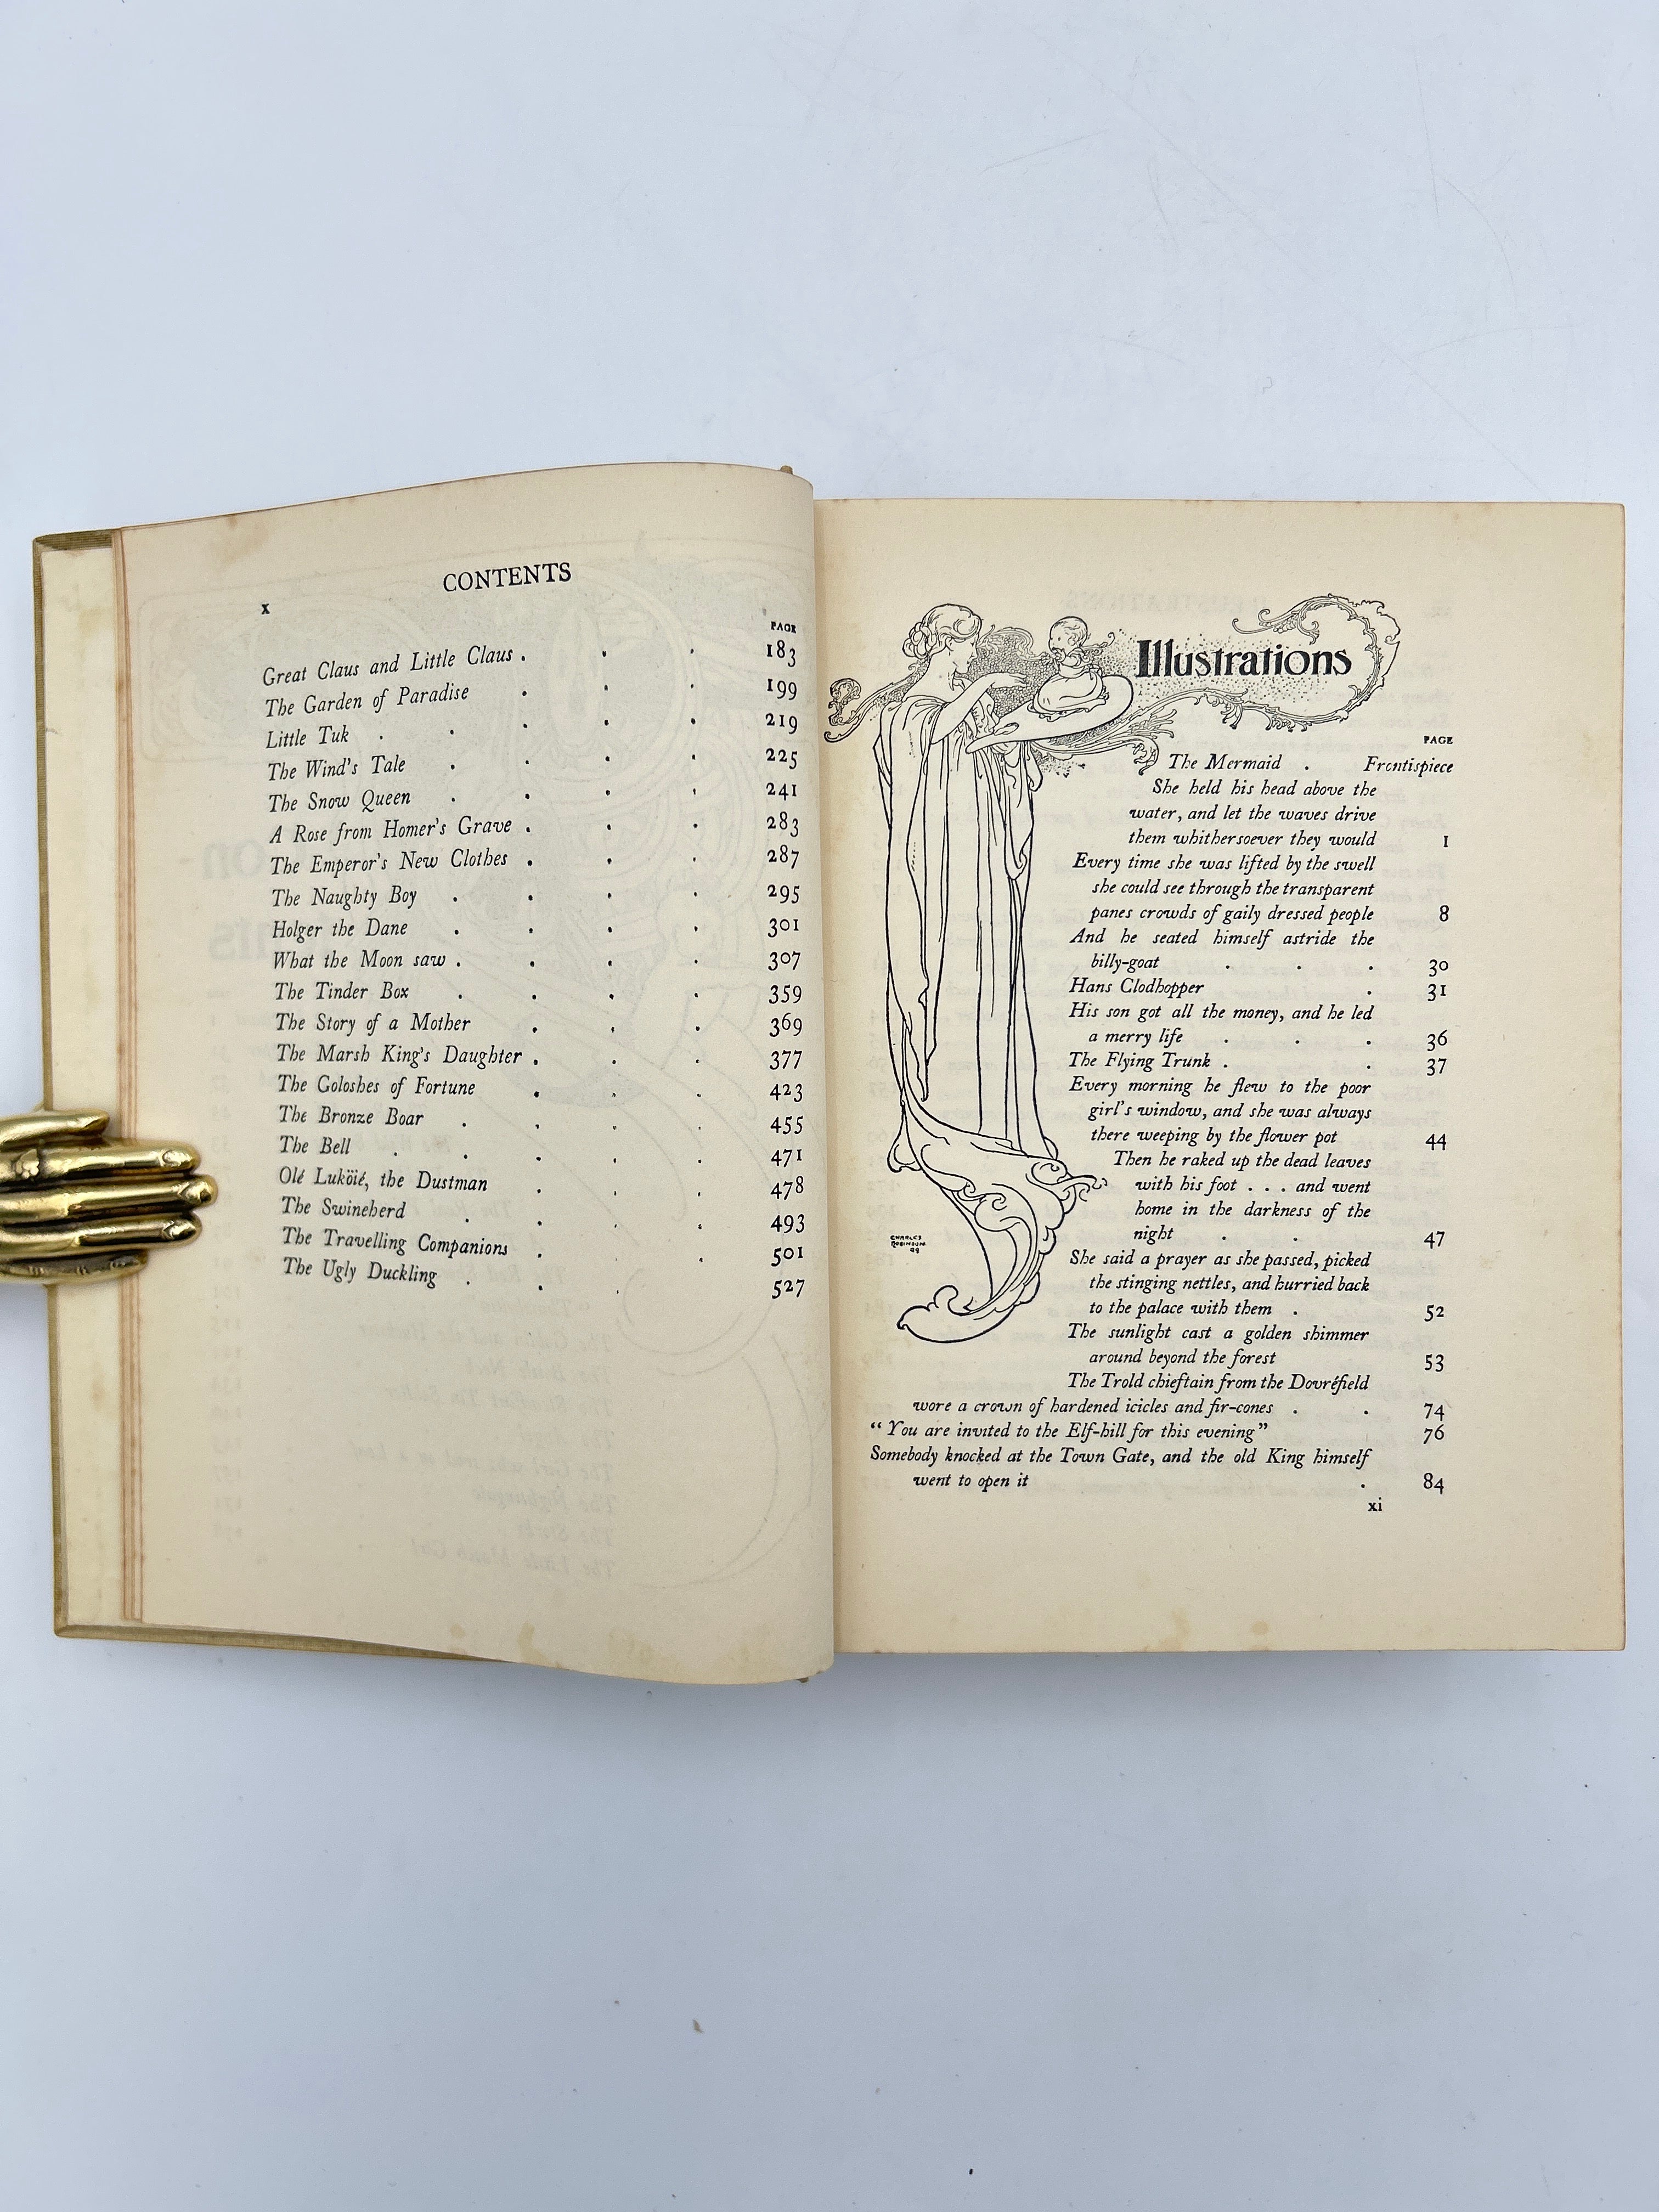 CONTENTS
x
PAGE
Great Claus and Little Claus . . . 183
The Garden of Paradise . . . 199
Little Tuk . . . . . 219
The Wind's Tale . . . . 225
The Snow Queen . . . . 241
A Rose from Homer's Grave . . . 283
The Emperor's New Clothes . . . 287
The Naughty Boy . . . . 295
Holger the Dane . . . . 301
What the Moon saw . . . . 307
The Tinder Box . . . . 359
The Story of a Mother . . . 369
The Marsh King's Daughter . . . 377
The Goloshes of Fortune . . . 423
The Bronze Boar . . . . 455
The Bell . . . . . 471
Olé Luköié, the Dustman . . . 478
The Swineherd . . . . 493
The Travelling Companions . . 501
The Ugly Duckling . . . 527
Illustrations
PAGE
The Mermaid . Frontispiece
She held his head above the
water, and let the waves drive
them whithersoever they would 1
Every time she was lifted by the swell
she could see through the transparent
panes crowds of gaily dressed people 8
And he seated himself astride the
billy-goat . . . 30
Hans Clodhopper . 31
His son got all the money, and he led
a merry life . . . 36
The Flying Trunk . . 37
Every morning he flew to the poor
girl's window, and she was always
there weeping by the flower pot 44
Then he raked up the dead leaves
with his foot . . . and went
home in the darkness of the
night . . 47
She said a prayer as she passed, picked
the stinging nettles, and hurried back
to the palace with them . 52
The sunlight cast a golden shimmer
around beyond the forest 53
The Trold chieftain from the Dovréfield
wore a crown of hardened icicles and fir-cones . . 74
"You are invited to the Elf-hill for this evening" 76
Somebody knocked at the Town Gate, and the old King himself
went to open it . 84
xi
CHARLES
ROBINSON
99